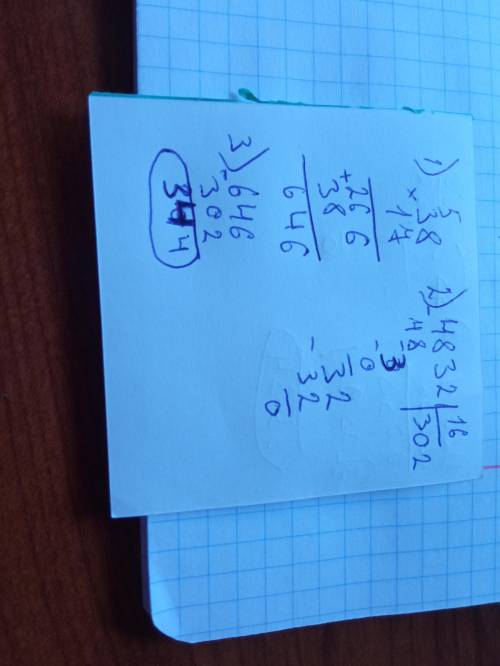 1)
5
×38
17
+266
38
646
2) -4832 | 16
48 | 302
-3
0
-32
32
0
3) -646
302
344